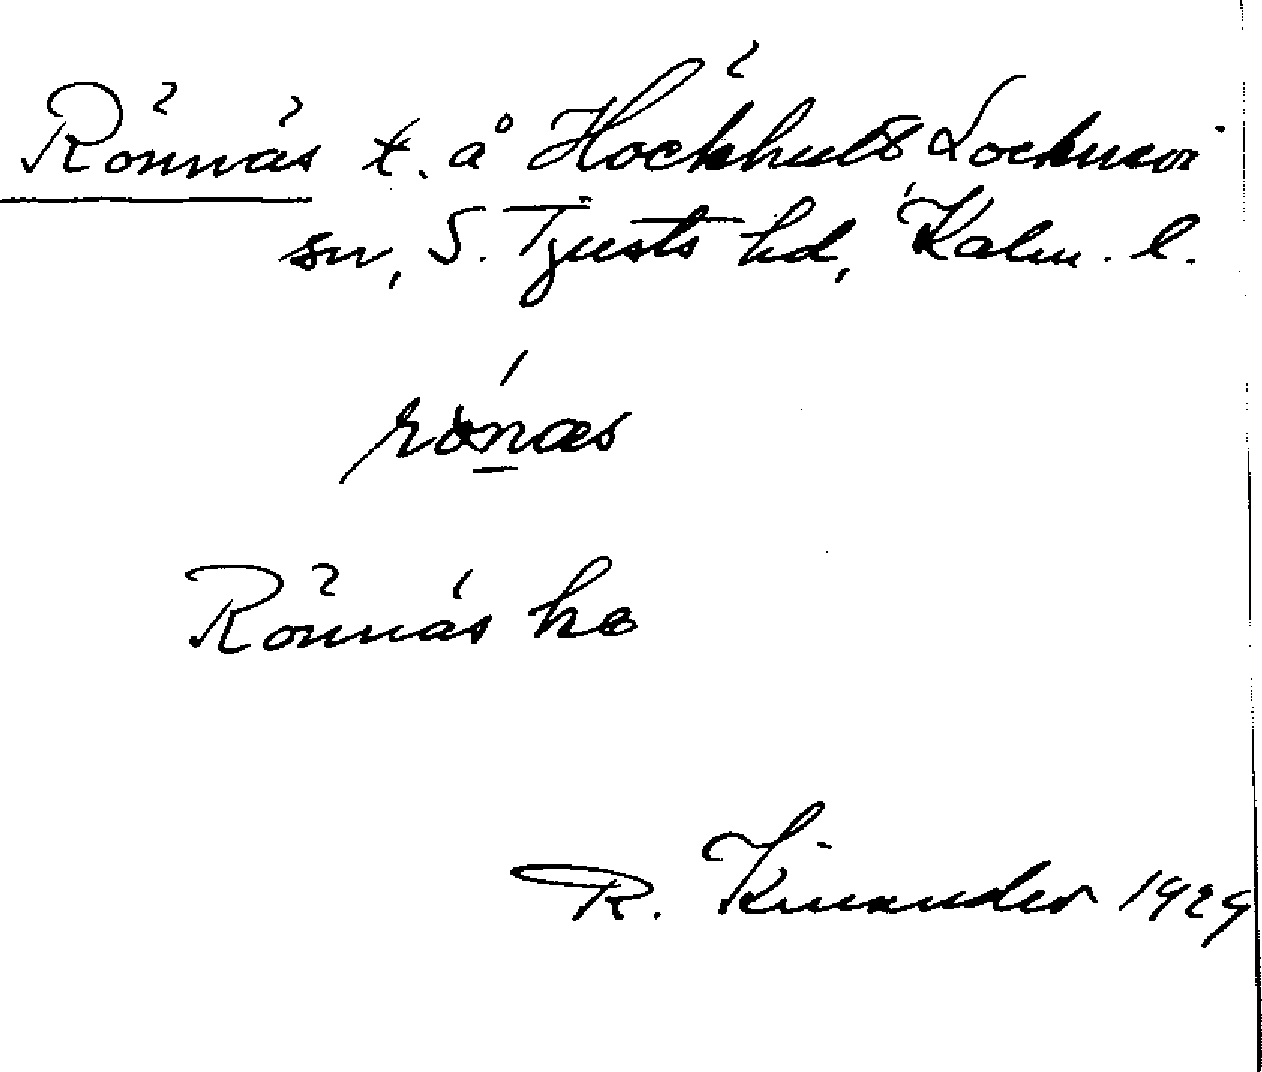 Rönnäs t. å Höckhult Locknevi
sn, S. Tjusts hd, Kalm. l.
rönæs
Rönnäs ha
R. Kinander 1929